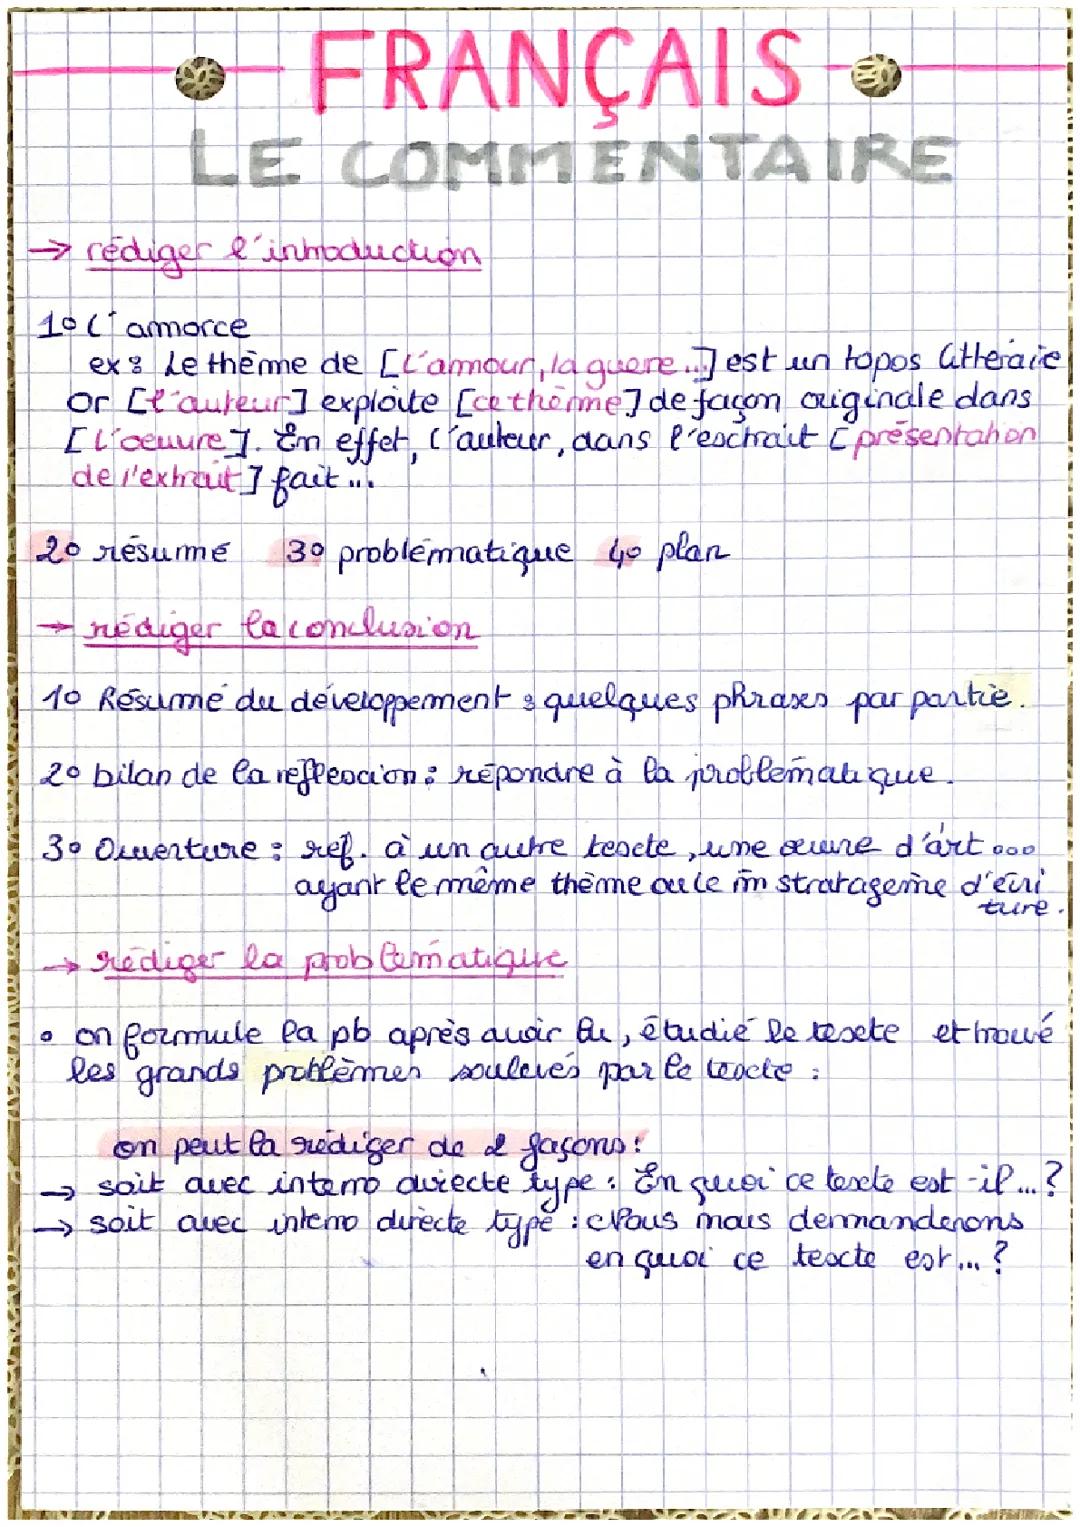 FRANÇAIS
LE COMMENTAIRE
→ rédiger l'introduction
1° L'amorce
ex : Le thème de [L'amour, la guerre...] est un topos littéraire
Or [l'auteur] exploite [ce thème] de façon originale dans
[L'oeuvre]. En effet, l'auteur, dans l'extrait [présentation
de l'extrait] fait ...
2° résumé 3° problématique 4° plan
→ rédiger la conclusion
1° Résumé du développement : quelques phrases par partie.
2° bilan de la réflexion : répondre à la problématique.
3° Ouverture : ref. à un autre texte, une œuvre d'art ...
ayant le même thème ou le m̄ stratagème d'écri
ture.
→ rédiger la problématique
• on formule la pb après avoir lu, étudié le texte et trouvé
les grands problèmes soulevés par le texte :
on peut la rédiger de 2 façons :
→ soit avec interro directe type : En quoi ce texte est-il ... ?
→ soit avec interro directe type : Nous nous demanderons
en quoi ce texte est ... ?